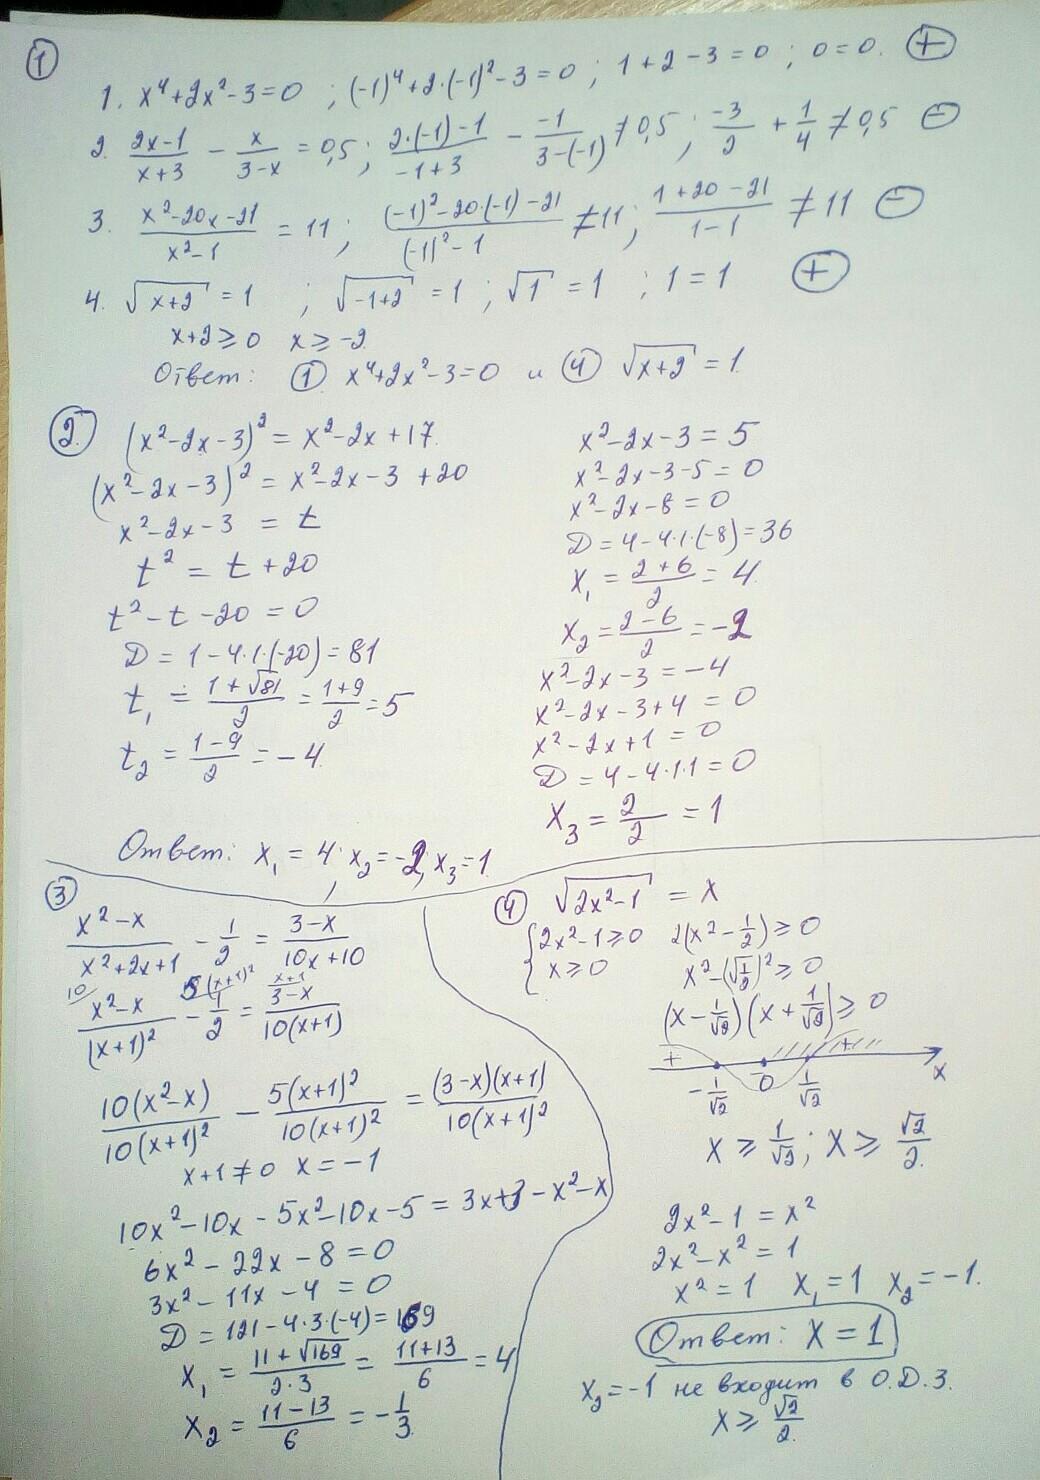 ①
1. x⁴+2x²-3=0 ; (-1)⁴+2·(-1)²-3=0 ; 1+2-3=0 ; 0=0. ⊕
2. (2x-1)/(x+3) - x/(3-x) = 0,5 ; (2·(-1)-1)/(-1+3) - (-1)/(3-(-1)) ≠ 0,5 ; -3/2 + 1/4 ≠ 0,5 ⊖
3. (x²-20x-21)/(x²-1) = 11 ; ((-1)²-20·(-1)-21)/((-1)²-1) ≠ 11 ; (1+20-21)/(1-1) ≠ 11 ⊖
4. √(x+2) = 1 ; √(-1+2) = 1 ; √1 = 1 ; 1=1 ⊕
x+2⩾0 x⩾-2
Ответ: ① x⁴+2x²-3=0 и ④ √(x+2) = 1.
②. (x²-2x-3)² = x²-2x+17.
(x²-2x-3)² = x²-2x-3 +20
x²-2x-3 = t
t² = t+20
t²-t-20=0
D = 1-4·1·(-20)=81
t₁ = (1+√81)/2 = (1+9)/2 = 5
t₂ = (1-9)/2 = -4.
x²-2x-3=5
x²-2x-3-5=0
x²-2x-8=0
D=4-4·1·(-8)=36
x₁ = (2+6)/2 = 4.
x₂ = (2-6)/2 = -2
x²-2x-3=-4
x²-2x-3+4=0
x²-2x+1=0
D=4-4·1·1=0
x₃ = 2/2 = 1
Ответ: x₁=4; x₂=-2; x₃=1.
③
(x²-x)/(x²+2x+1) - 1/2 = (3-x)/(10x+10)
10/ (x²-x)/(x+1)² - 5(x+1)²/ 1/2 = x+1/ (3-x)/(10(x+1))
10(x²-x)/(10(x+1)²) - 5(x+1)²/(10(x+1)²) = (3-x)(x+1)/(10(x+1)²)
x+1≠0 x=-1
10x²-10x-5x²-10x-5=3x+3-x²-x
6x²-22x-8=0
3x²-11x-4=0
D=121-4·3·(-4)=169
x₁ = (11+√169)/(2·3) = (11+13)/6 = 4
x₂ = (11-13)/6 = -1/3.
④ √(2x²-1) = x
{ 2x²-1⩾0 2(x²-1/2)⩾0
x⩾0 x²-(√(1/2))²⩾0
(x-1/√2)(x+1/√2)⩾0
+ - +
-1/√2 0 1/√2 x
x⩾1/√2 ; x⩾√2/2.
2x²-1=x²
2x²-x²=1
x²=1 x₁=1 x₂=-1.
Ответ: x=1
x₂=-1 не входит в О.Д.З.
x⩾√2/2.